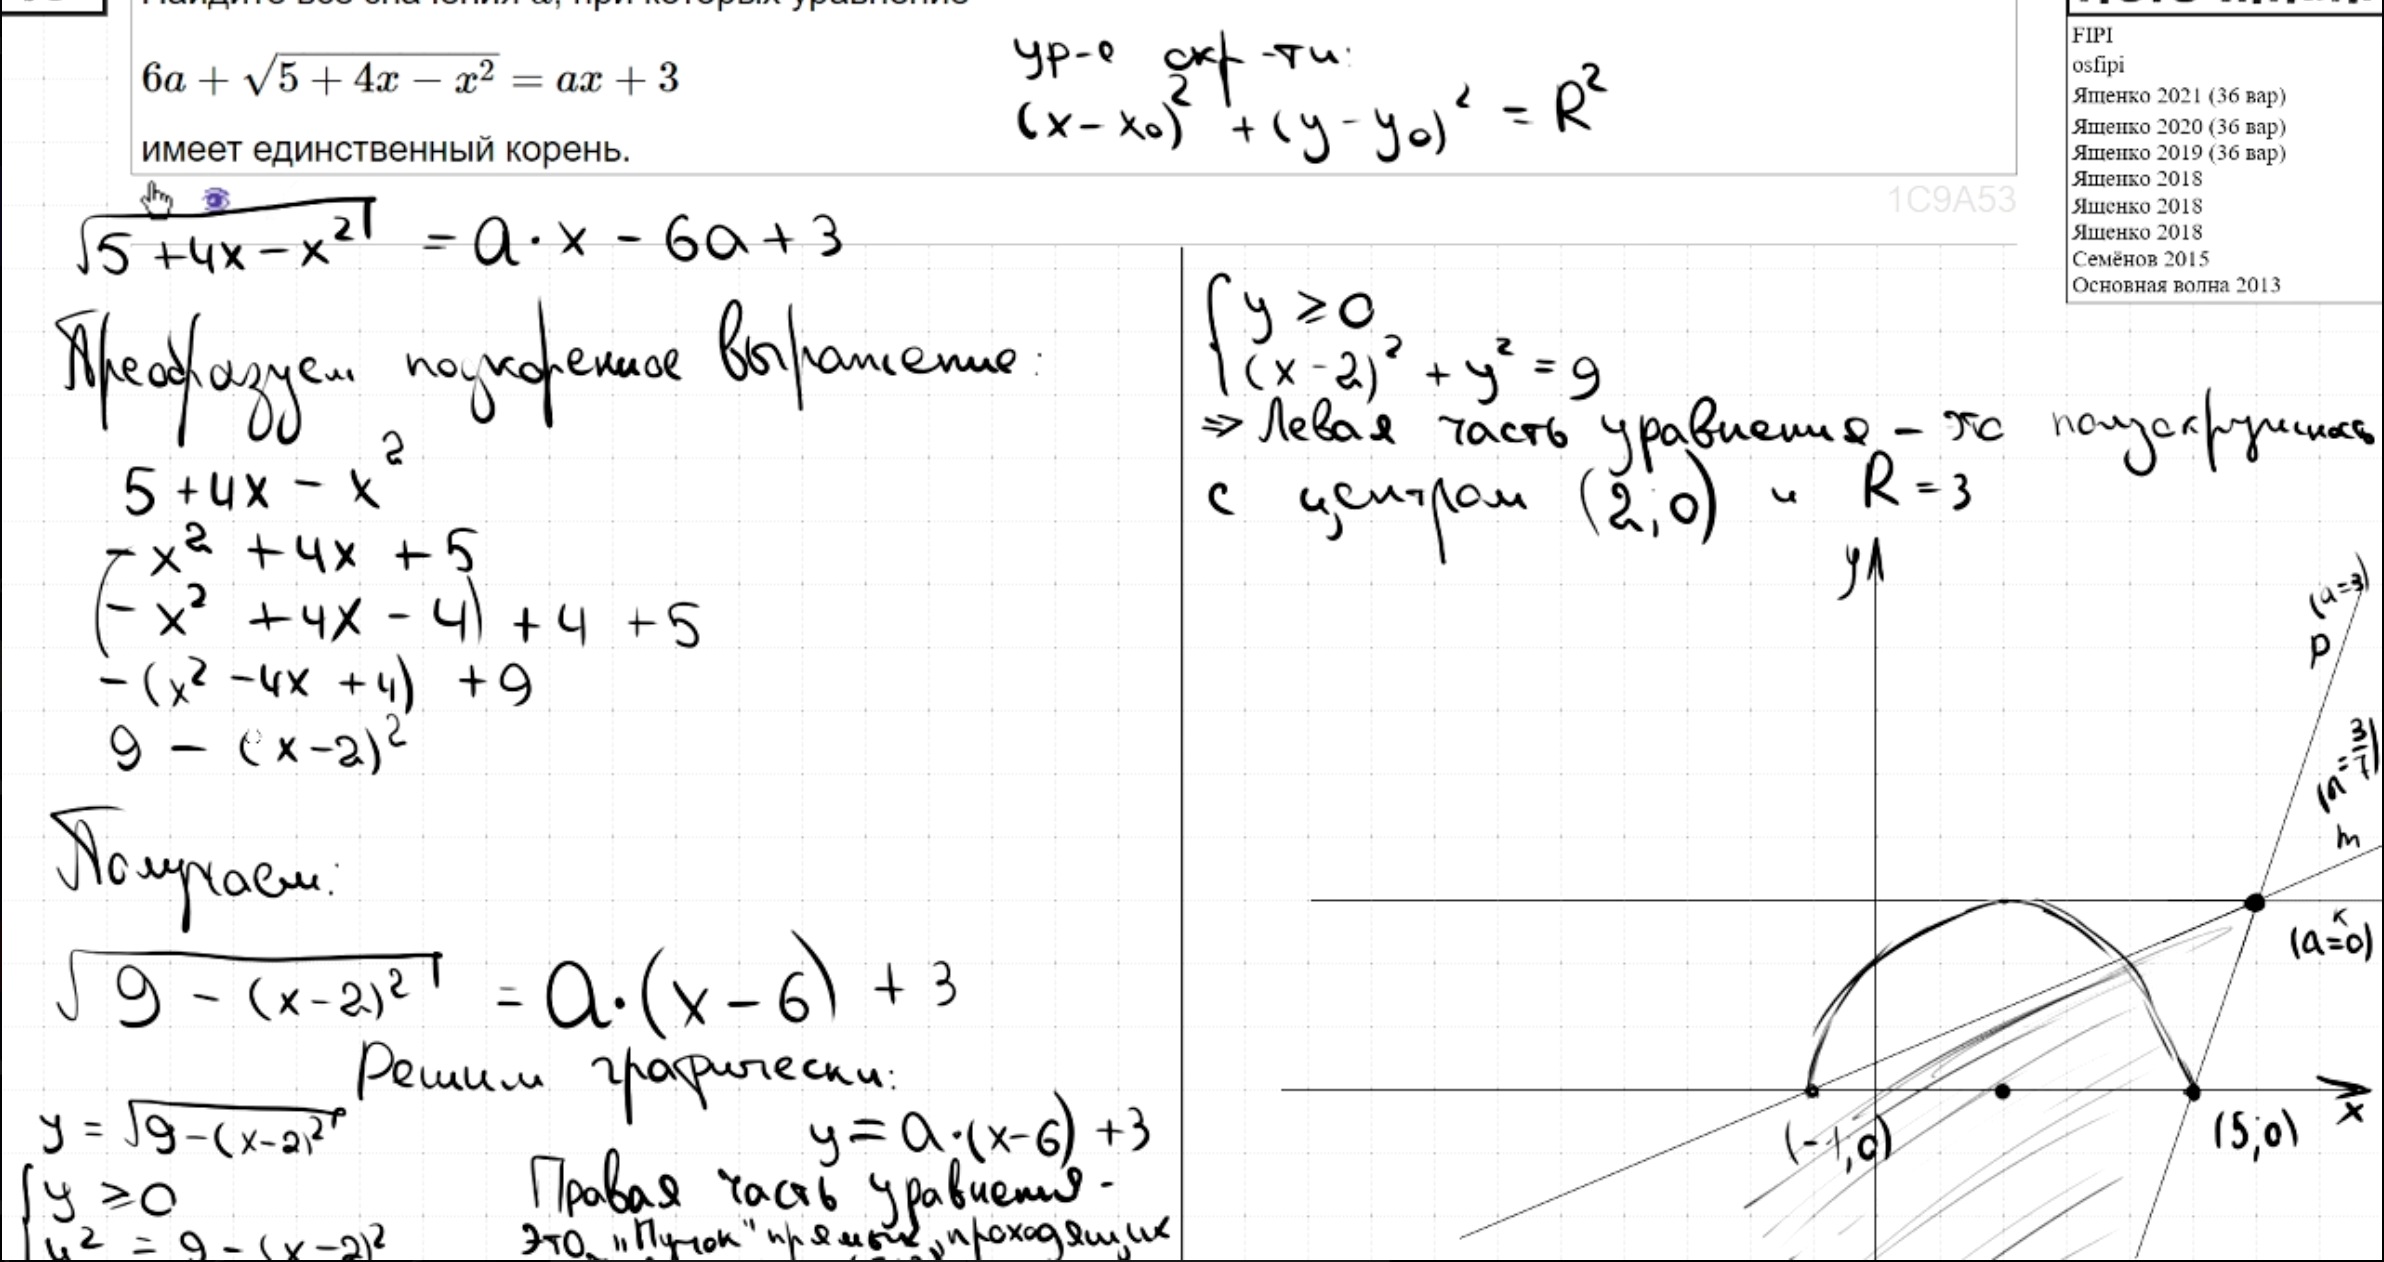 Найдите все значения a, при которых уравнение
6a + √(5 + 4x − x²) = ax + 3
имеет единственный корень.
ур-е окр-ти:
(x − x₀)² + (y − y₀)² = R²
FIPI
osfipi
Ященко 2021 (36 вар)
Ященко 2020 (36 вар)
Ященко 2019 (36 вар)
Ященко 2018
Ященко 2018
Ященко 2018
Семёнов 2015
Основная волна 2013
1C9A53
√(5 + 4x − x²) = a·x − 6a + 3
Преобразуем подкоренное выражение:
5 + 4x − x²
− x² + 4x + 5
(− x² + 4x − 4) + 4 + 5
−(x² − 4x + 4) + 9
9 − (x−2)²
Получаем:
√(9 − (x−2)²) = a·(x − 6) + 3
Решим графически:
y = √(9−(x−2)²)
y ≥ 0
y² = 9 − (x−2)²
y = a·(x−6) + 3
Правая часть уравнения -
это "Пучок" прямых, проходящих
{ y ≥ 0
(x−2)² + y² = 9
⇒ Левая часть уравнения – это полуокружность
с центром (2;0) и R = 3
y
(a=3)
p
(a=3/7)
m
к
(a=0)
(−1;0)
(5;0)
x